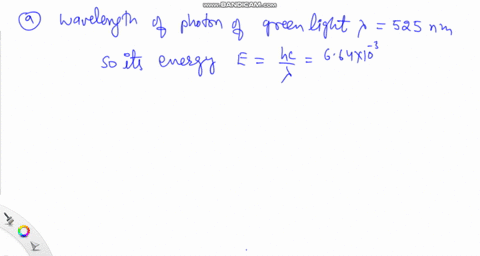 WWW.BANDICAM.COM
(a) wavelength of photon of green light λ = 525 nm
so its energy E = hc/λ = 6.64×10^-3